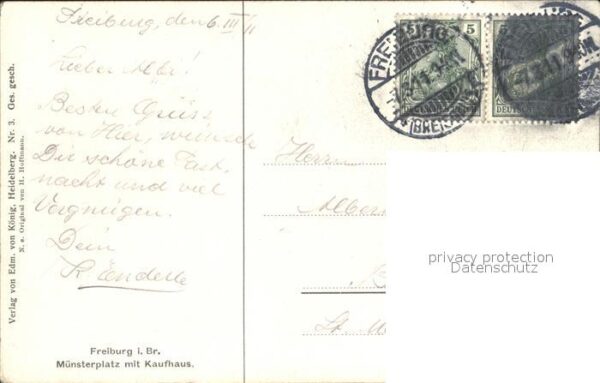 Freiburg, den 6 III 11
Lieber Albi!
Besten Gruss
von Hier, wünsch
Dir schöne Fast-
nacht und viel
Vergnügen.
Dein
K. Enderle
Freiburg i. Br.
Münsterplatz mit Kaufhaus.
Verlag von Edm. von König, Heidelberg. Nr. 3. Ges. gesch.
N. e. Original von H. Hoffmann.
5 5
FREIBURG
(BREISGAU)
Herrn
privacy protection
Datenschutz